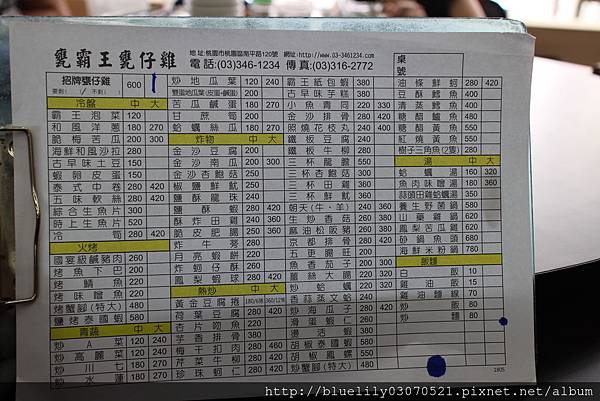 甕霸王甕仔雞
地址:桃園市桃園區南平路120號 網址:http://www.03-3461234.com
電話:(03)346-1234 傳真:(03)316-2772
桌號
招牌甕仔雞 600
要剁( ) 不剁( )
冷盤 中 大
霸王泡菜 120
和風洋蔥 180 270
脆梅苦瓜 200 300
海鮮和風沙拉 280
古早味土豆 150
蝦卵皮蛋 150
泰式中卷 280 420
五味軟絲 280 420
綜合生魚片 300
時上生魚片 520
冷筍 280 420
火烤
國宴級鹹豬肉 260
烤魚下巴 220
烤鯖魚 220
烤味噌魚 220
烤蟹腳(特大) 480
鹽烤泰國蝦 580
青蔬 中 大
炒A菜 120 240
炒高麗菜 120 240
炒川七 120 240
炒水蓮 180 270
炒地瓜葉 120 240
雙蛋地瓜葉(皮蛋+鹹蛋) 200
苦瓜鹹蛋 180 270
甘蔗筍 200 300
蛤蠣絲瓜 180 270
炸物 中 大
金沙豆腐 200
金沙南瓜 200 300
金沙杏鮑菇 250
椒鹽鮮魷 250
鹽酥龍珠 240
鹽酥蝦 280 420
酥炸田雞 240 360
脆皮肥腸 250
炸牛蒡 280
月亮蝦餅 280
炸蚵仔酥 280
鳳梨蝦球 280 420
熱炒 中 大
黃金豆腐捲 180/6捲 360/12捲
荷葉豆腐 280 420
杏片吻魚 280
芋香排骨 380
梅干扣肉 280
芹菜牛柳 280 420
珍珠蚵仁 280 420
霸王紙包蝦 380
古早味芋糕 380
小魚青同 220
金沙排骨 280 420
照燒花枝丸 240 400
鐵板豆腐 240
鐵板牛柳 280
三杯龍膽 550
三杯杏鮑菇 300
三杯田雞 240 360
三杯鮮魷 240 360
朝天(牛、羊) 240 360
生炒香菇 260
麻油松阪豬 360
京都排骨 280 420
五更腸旺 220
魚香茄子 200 300
蘿絲大腸 220 330
炒蛤蠣 220
香蒜蒸文蛤 220
炒海瓜子 280 420
滑蛋蝦仁 260
胡椒泰國蝦 580
胡椒鳳螺 550
炒蟹腳(特大) 480
油條鮮蚵 280 420
豆酥鱈魚 400
清蒸鱈魚 400
糖醋鱸魚 500
糖醋黃魚 550
紅燒黃魚 550
樹子三角魚(2隻) 280
湯 中 大
蛤蠣湯 160 320
魚肉味噌湯 180 360
蒜頭田雞蛤蠣湯 350
養生野菇鍋 580
山藥雞鍋 680
鳳梨苦瓜雞 680
砂鍋魚頭 680
海鮮米粉鍋 780
飯麵
白飯 10
雞油飯 15
雞油麵線 70
炒飯 80
炒麵 80
1805
http://bluelily03070521.pixnet.net/album